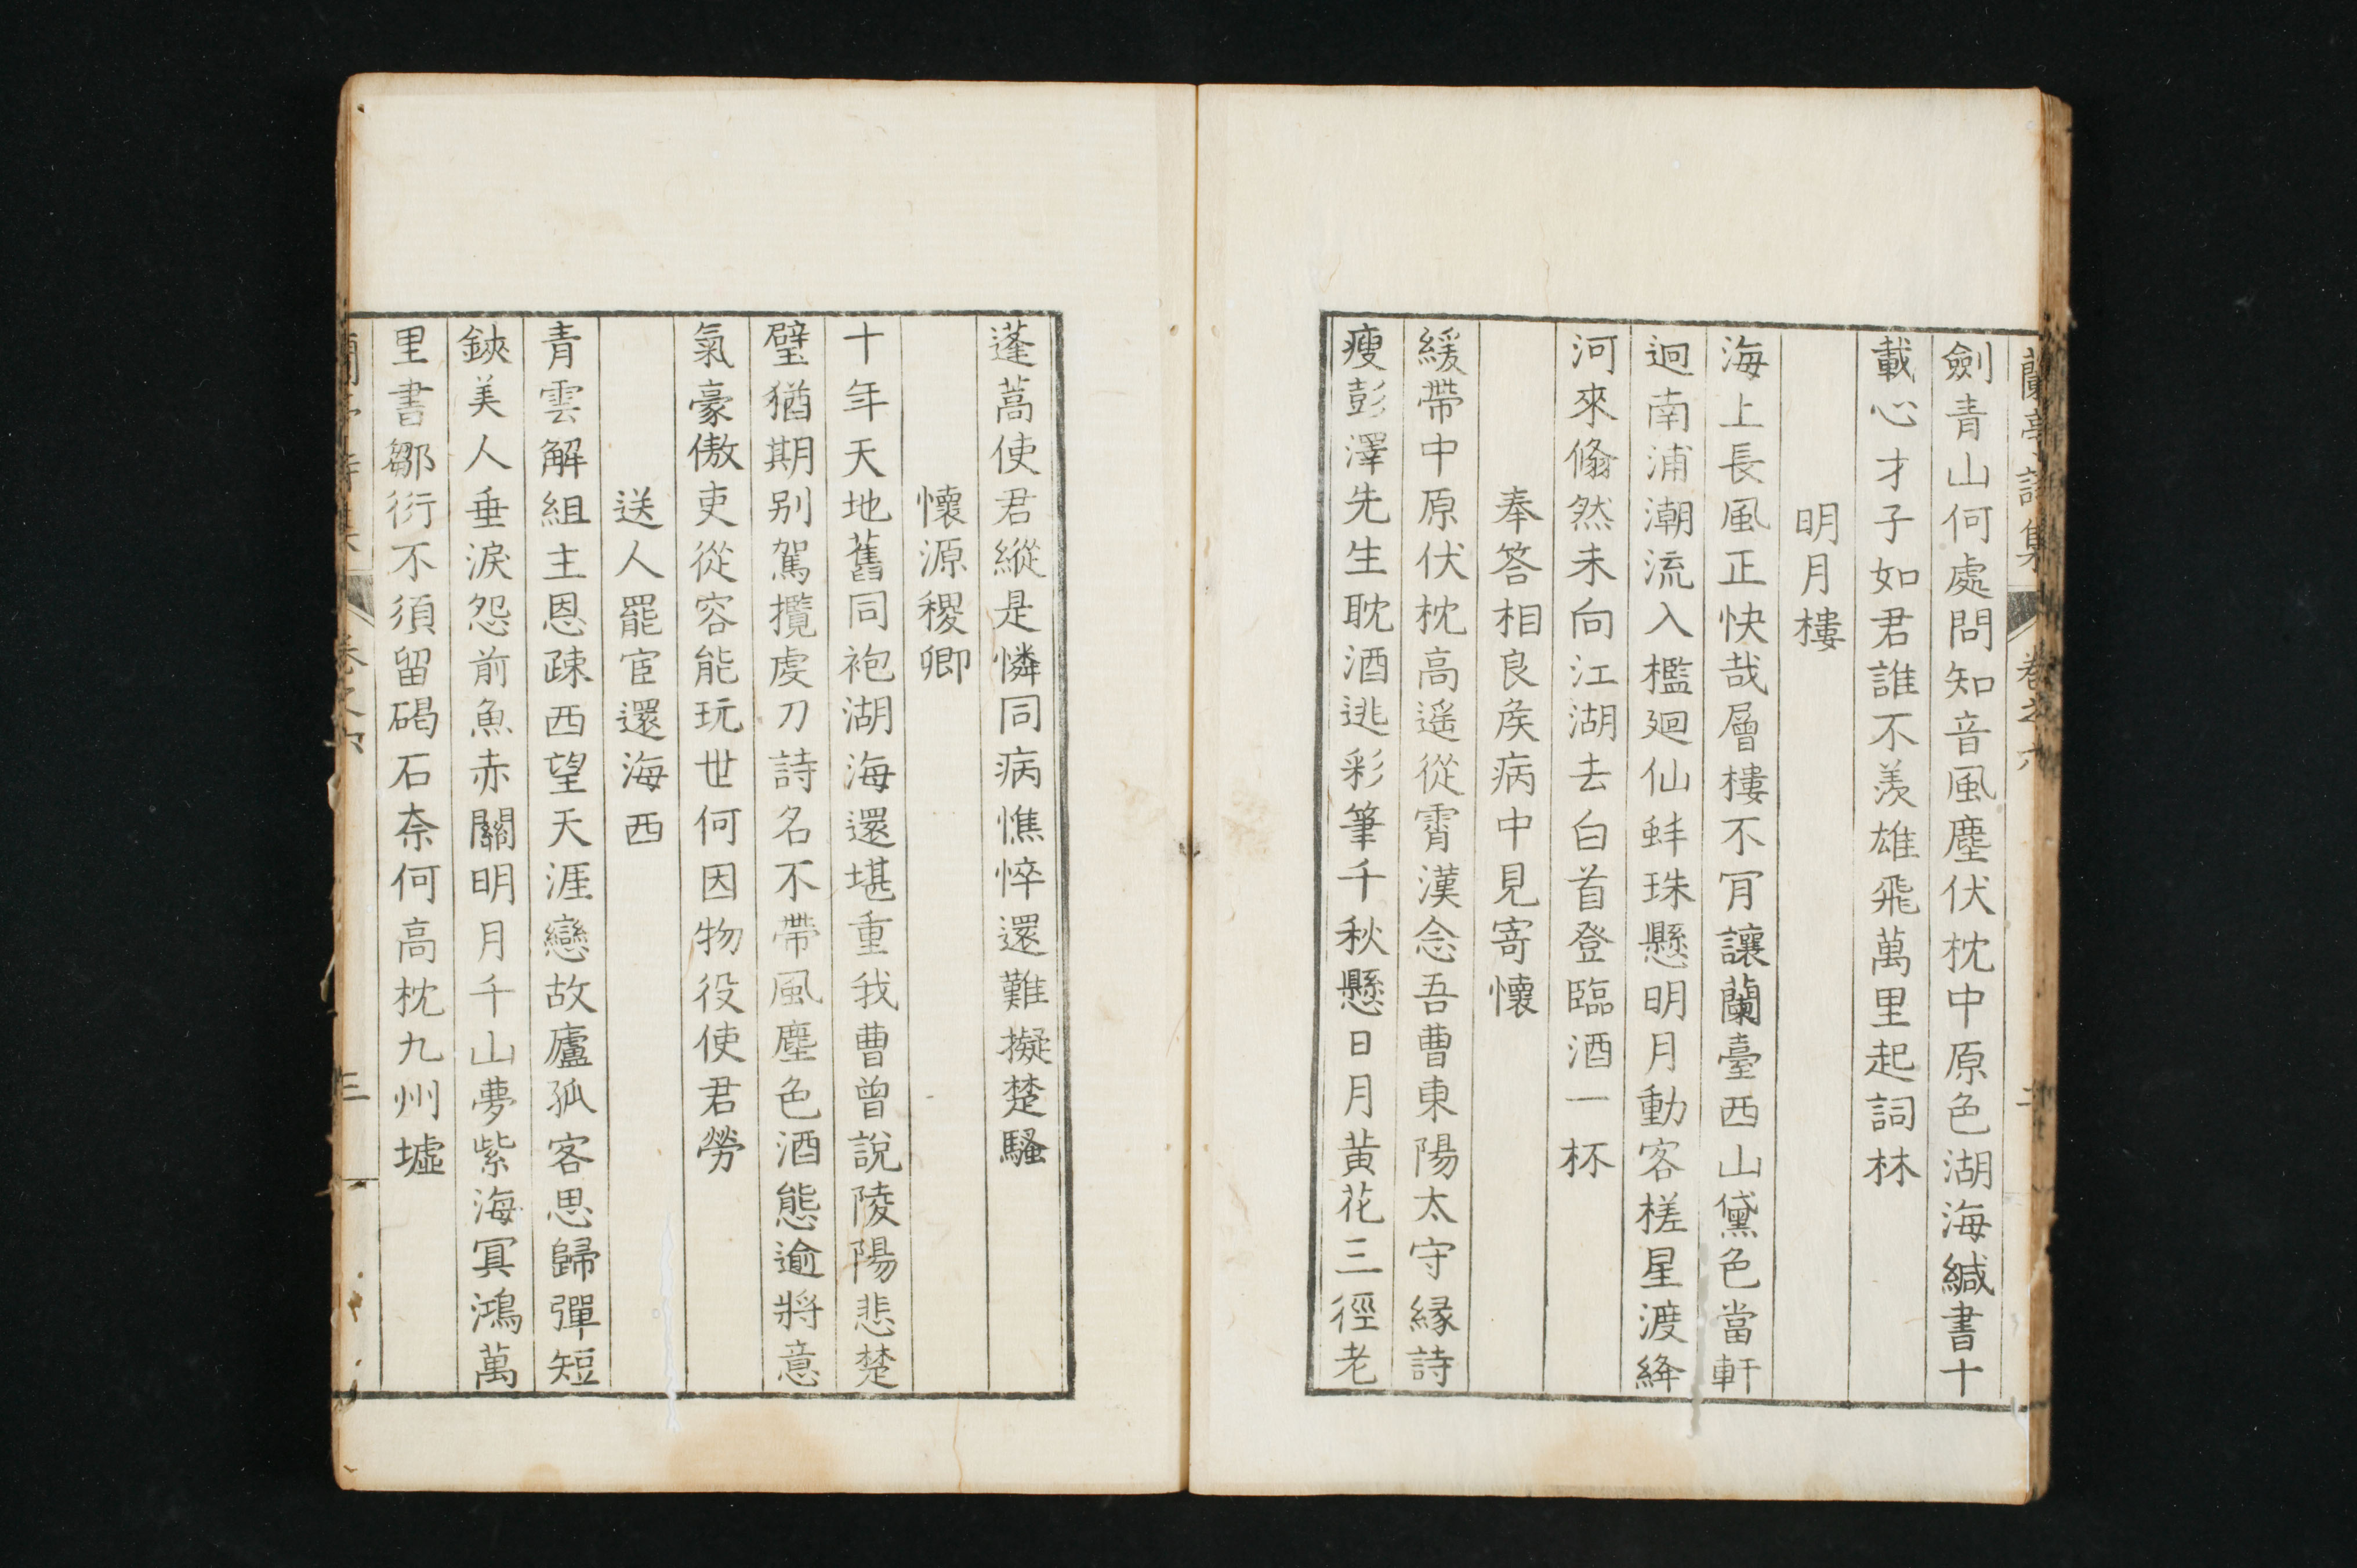 蘭亭詩集 卷之六 二
劍青山何處問知音風塵伏枕中原色湖海緘書十
載心才子如君誰不羨雄飛萬里起詞林
明月樓
海上長風正快哉層樓不肎讓蘭臺西山黛色當軒
迥南浦潮流入檻廻仙蚌珠懸明月動客槎星渡絳
河來翛然未向江湖去白首登臨酒一杯
奉答相良矦病中見寄懷
緩帶中原伏枕高遙從霄漢念吾曹東陽太守緣詩
瘦彭澤先生耽酒逃彩筆千秋懸日月黃花三徑老
蓬蒿使君縱是憐同病憔悴還難擬楚騷
懷源稷卿
十年天地舊同袍湖海還堪重我曹曾說陵陽悲楚
璧猶期別駕攬虔刀詩名不帶風塵色酒態逾將意
氣豪傲吏從容能玩世何因物役使君勞
送人罷宦還海西
青雲解組主恩疎西望天涯戀故廬孤客思歸彈短
鋏美人垂淚怨前魚赤關明月千山夢紫海冥鴻萬
里書鄒衍不須留碣石柰何高枕九州墟
蘭亭詩集 卷之六 三